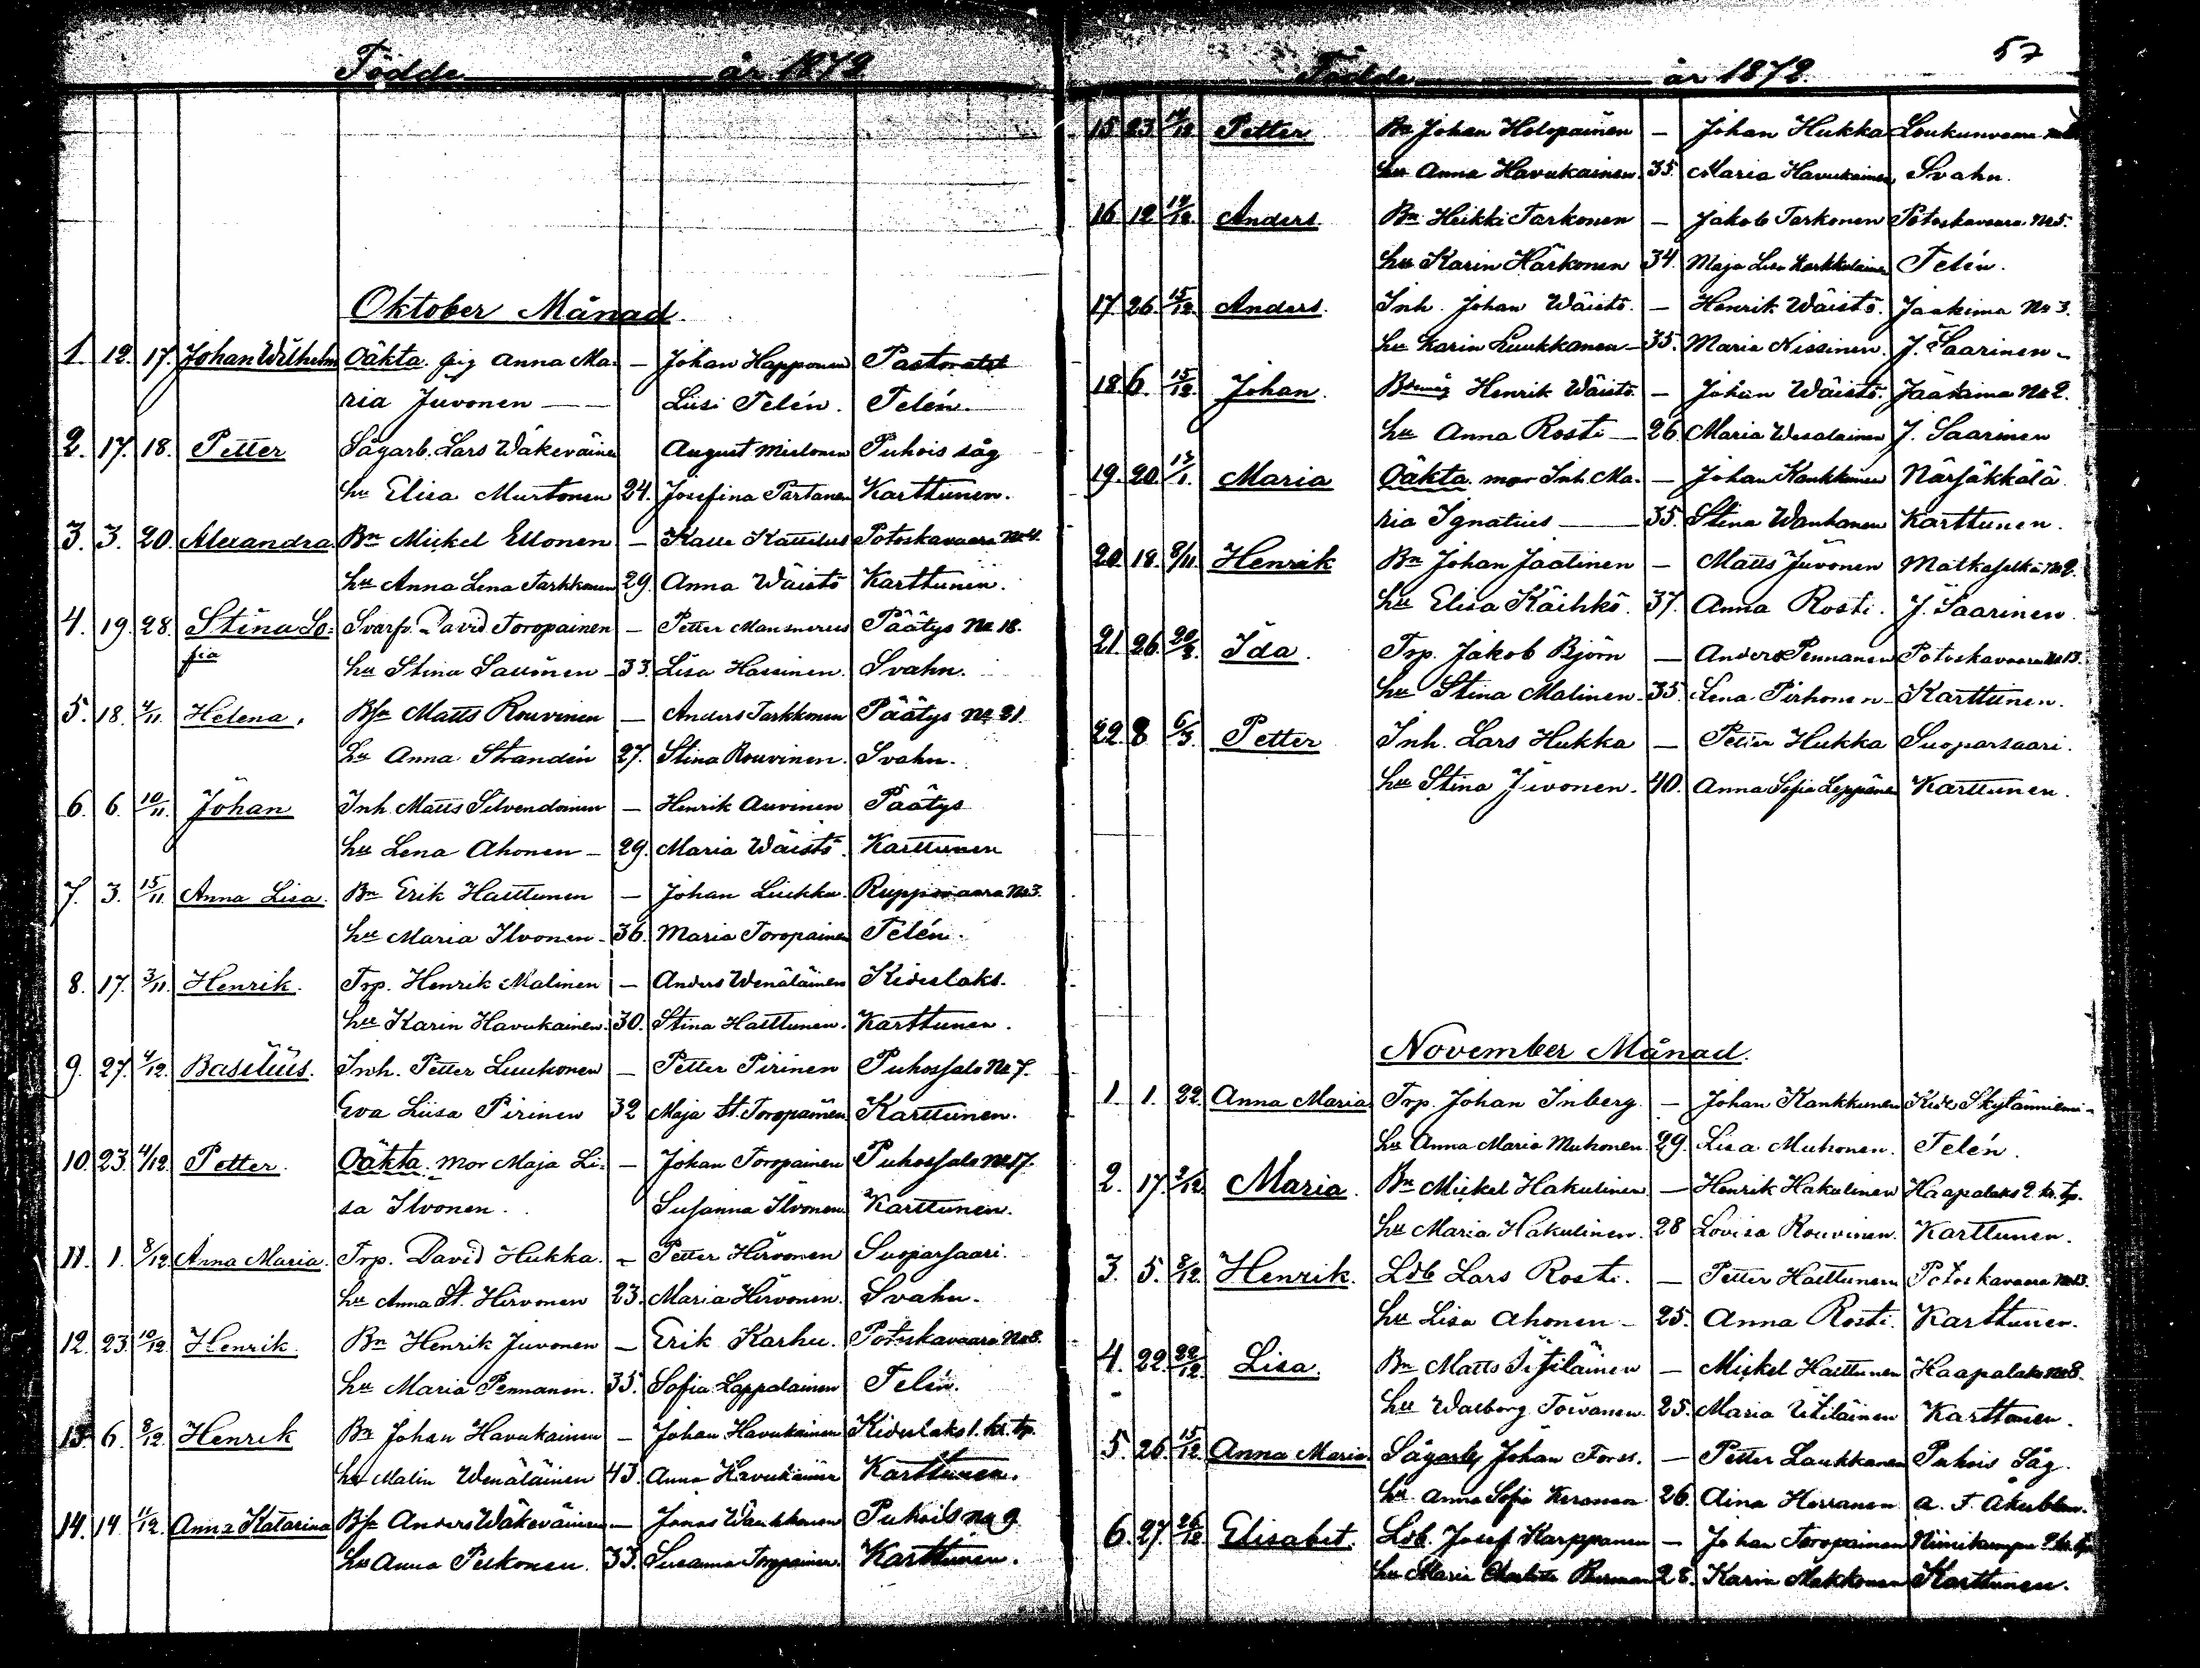 Födde år 1872
Oktober Månad.
1. 12. 17. Johan Wilhelm Oäkta. pig Anna Ma- — Johan Happonen Pastoratet
ria Juvonen — Liisi Telén. Telén.
2. 17. 18. Petter Sågarb. Lars Wäkeväinen August Mielonen Puhois såg
hu Elisa Murtonen 24. Josefina Partanen Karttunen.
3. 3. 20. Alexandra Bn Mickel Ellonen — Kalle Kattilus Potoskavaara No 4.
hu Anna Lena Tarkkonen 29. Anna Wäistö Karttunen.
4. 19. 28. Stina So- Svarfv. David Toropainen — Petter Mansnerus Päätys No 18.
fia hu Stina Sallinen 33. Lisa Hassinen. Svahn.
5. 18. 4/11. Helena. Bsn Matts Rouvinen — Anders Tarkkonen Päätys No 21.
hu Anna Strandén 27. Stina Rouvinen. Svahn.
6. 6. 10/11. Johan Inh. Matts Silvendoinen — Henrik Auvinen Päätys
hu Lena Ahonen — 29. Maria Wäistö. Karttunen
7. 3. 15/11. Anna Lisa. Bn Erik Haittunen — Johan Liukku. Ruppovaara No 3.
hu Maria Ilvonen 36. Maria Toropainen Telén.
8. 17. 3/11. Henrik. Trp. Henrik Malinen — Anders Wenäläinen Kideslaks.
hu Karin Havukainen. 30. Stina Haittunen. Karttunen.
9. 27. 4/12. Basilius. Inh. Petter Luukonen — Petter Pirinen Puhossalo No 7.
Eva Liisa Pirinen 32 Maja St. Toropainen Karttunen.
10. 23. 4/12. Petter. Oäkta. mor Maja Li- — Johan Toropainen Puhossalo No 17.
sa Ilvonen. Susanna Ilvonen Karttunen.
11. 1. 8/12. Anna Maria. Trp. David Hukka. — Petter Hirvonen Suoparsaari.
hu Anna St. Hirvonen 23. Maria Hirvonen. Svahn.
12. 23. 10/12. Henrik. Bn Henrik Juvonen — Erik Karhu. Potoskavaara No 8.
hu Maria Pennanen. 35. Sofia Lappalainen Telén.
13. 6. 8/12. Henrik Bn Johan Havukainen — Johan Havukainen Kideslaks 1. kr. tp.
hu Malin Wenäläinen 43. Anna Havukainen Karttunen.
14. 14. 11/12. Anna Katarina Bsn Anders Wäkeväinen — Jonas Wankkonen Puhois No 9
hu Anna Pekonen. 33. Susanna Toropainen. Karttunen.
57
Födde år 1872.
15 23. Petter Bn Johan Holopainen — Johan Hukka Loukunvaara
hu Anna Havukainen. 35. Maria Havukainen Svahn.
16. 12 14/12. Anders Bn Heikki Tarkonen — Jakob Tarkonen Potoskavaara No 5.
hu Karin Härkönen 34. Maja Lisa Karkkulainen Telén.
17. 26. 15/12. Anders. Inh. Johan Wäistö. — Henrik Wäistö. Jaakima No 3.
hu Karin Luukkanen 35. Maria Nissinen. J. Saarinen.
18 6. 15/12. Johan. Henrik Wäistö — Johan Wäistö. Jaakima No 2.
hu Anna Rosti — 26 Maria Wesalainen J. Saarinen
19. 20. Maria Oäkta mor Inh. Ma- — Johan Kankkunen Närsäkkälä.
ria Ignatius — 35. Stina Wanhanen Karttunen.
20. 18. 8/11. Henrik Bn Johan Jaatinen — Matts Juvonen Matkaselkä No 2.
hu Elisa Käihkö. 37. Anna Rosti. J. Saarinen.
21. 26. Ida. Trp. Jakob Björn — Anders Pennanen Potoskavaara No 13.
hu Stina Malinen 35. Lena Pirhonen Karttunen.
22. 8 6/3. Petter Inh. Lars Hukka — Petter Hukka Suoparsaari.
hu Stina Juvonen. 40. Anna Sofia Leppänen Karttunen.
November Månad.
1. 1. 22. Anna Maria Trp. Johan Inberg. — Johan Kankkunen Kide Skytänniemi
hu Anna Maria Muhonen. 29. Lisa Muhonen. Telén.
2. 17. 2/12. Maria. Bn Mickel Hakulinen — Henrik Hakulinen Haapalaks 2. kr. tp.
hu Maria Hakulinen. 28 Lovisa Rouvinen. Karttunen.
3. 5. 8/12. Henrik. Lsb Lars Rosti. — Petter Haittunen Potoskavaara No 13.
hu Lisa Ahonen — 25. Anna Rosti. Karttunen.
4. 22. 22/12. Lisa. Bn Matts — Mickel Haittunen Haapalaks No 8.
hu Walborg Toivanen. 25. Maria Karttunen.
5. 26. 15/12. Anna Maria. Sågarb. Johan Forss. — Petter Laukkanen Puhois Såg.
hu Anna Sofia Keronen 26. Aina Herranen A. F. Åkerblom.
6. 27. 26/12 Elisabet. Lsb. Josef Karppanen — Johan Toropainen Niinikumpu
hu Maria Charlotta Burman 28. Karin Makkonen Karttunen.